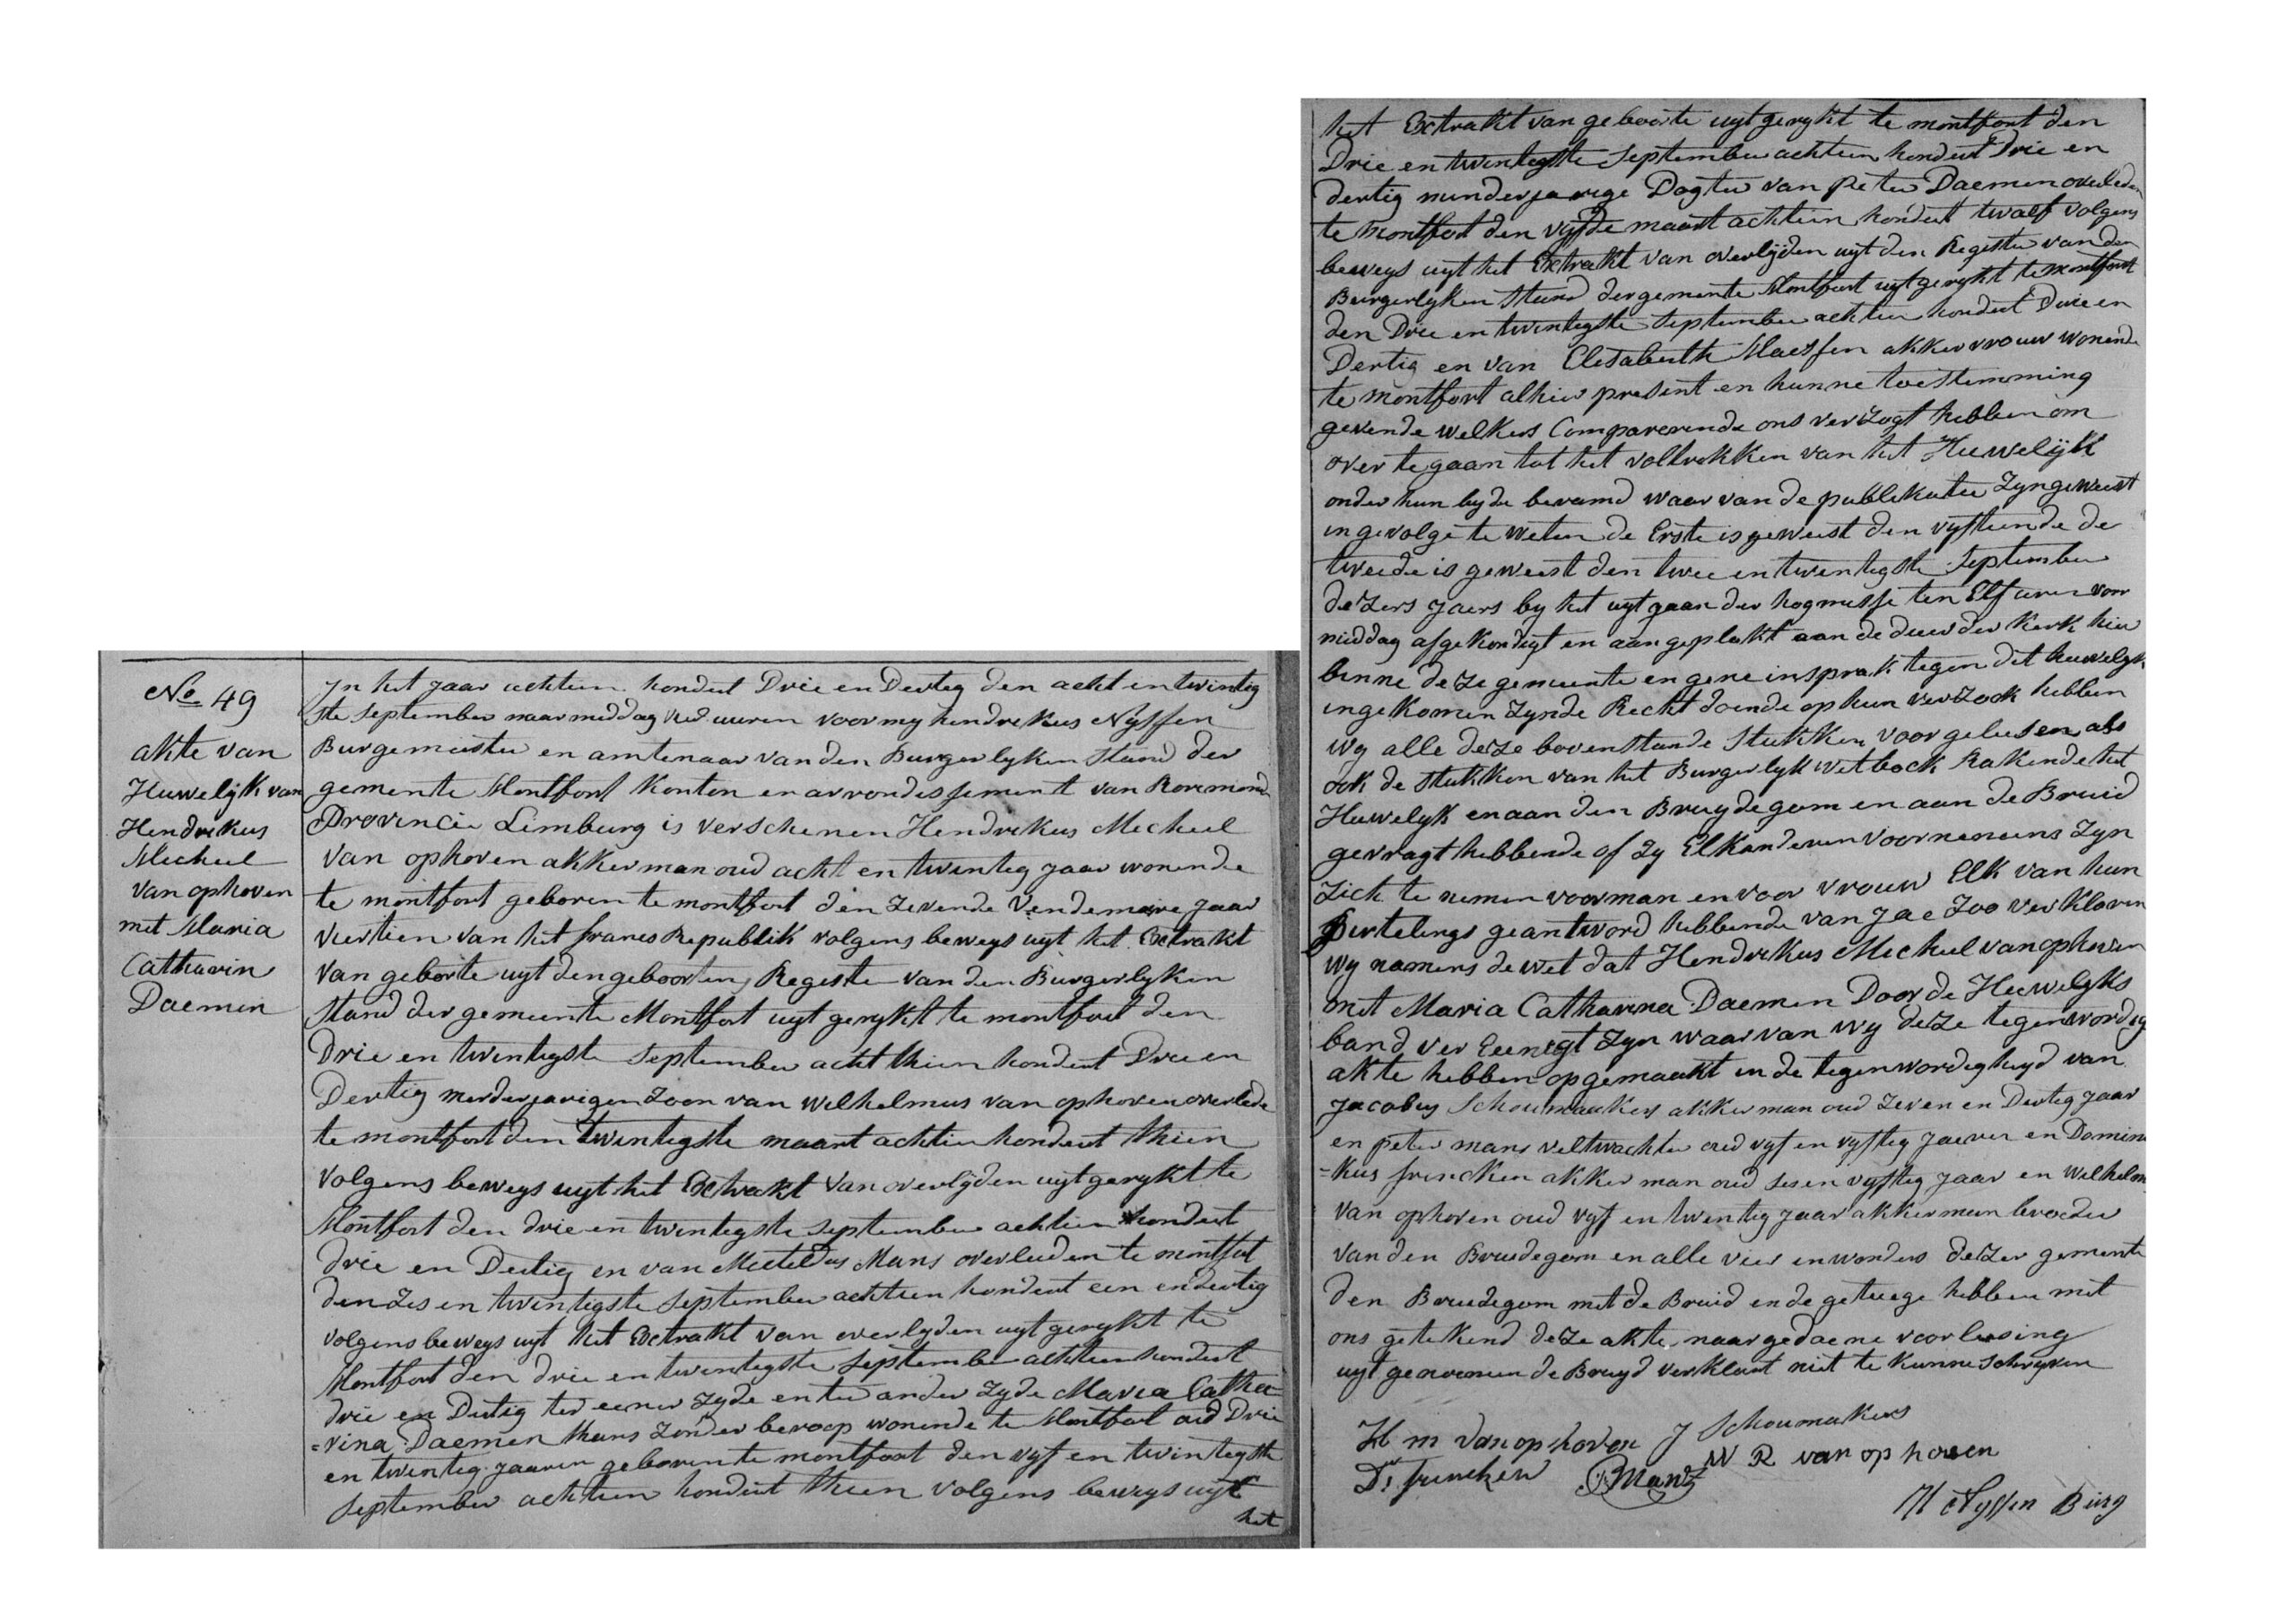 No 49
akte van
Huwelijk van
Hendrekus
Mecheel
van ophoven
met Maria
Catharin
Daemen
In het jaar achtien hondert Drie en Derteg den acht en twinteg
ste September naar middag uuren voor my hendrekus Nyssen
Burgemeester en amtenaar van den Burgerlyken Stand der
gemeente Montfort Konton en arrondissement van Roremond
Provincie Limburg is verschenen Hendrekus Mecheel
van ophoven akkerman oud acht en twenteg jaar wonende
te montfort geboren te montfort den zevende Vendemaire jaar
viertien van het frances Republik volgens beweys uyt het Extrakt
van geboorte uyt den geboorten Regester van den Burgerlyken
Stand der gemeente Montfort uyt gerykt te montfort den
Drie en twentegste September acht thien hondert Drie en
Dertig merderjarigen Zoon van Welhelmus van ophoven overlede
te montfort den twentegste maart achtien hondert thien
volgens beweys uyt het Extrakt van overlyden uyt gerykt te
Montfort den drie en twentegste September achtien hondert
drie en Dertig en van Mans overleeden te montfort
den Zes en twentegste September achtien hondert een en dertig
volgens beweys uyt het Extrakt van overlyden uyt gerykt te
Montfort den drie en twentegste September achtien hondert
drie en Dertig ter eener zyde en ter ander zyde Maria Catha
=rina Daemen thans zonder beroep wonende te Montfort oud Drie
en twenteg jaaren geboren te montfort den vyf en twentegste
September achtien hondert thien volgens beweys uyt
het
het Extrakt van geboorte uyt gerykt te montfort den
Drie en twentegste September achtien hondert Drie en
dertig minderjarege Dogter van Peter Daemen overleden
te montfort den vyfde maart achtien hondert twalf volgens
beweys uyt het Extrakt van overlyden uyt den Regester van den
Burgerlyken Stand der gemeente Montfort uyt gerykt te montfort
den Drie en twentegste September achtien hondert Drie en
Dertig en van Elesabeth Maessen akkervrouw wonende
te montfort alhier present en hunne toestemming
gevende welkers Comparerende ons verzogt hebben om
over te gaan tot het voltrekken van het Huwelijk
onder hun byde beramd waar van de publekatee Zyn geweest
in gevolge te weten de Erste is geweest den vyftiende de
tweede is geweest den twee en twentegste September
dezers jaers by het uyt gaan der hogmesse ten Elf uren voor
middag afgekondigt en aan geplakt aan de deur der Kerk hier
binne deze gemeente en gene inspraak tegen dit huwelyk
ingekomen zynde Recht doende op hun verzoek hebben
wy alle deze bovenstande Stukken voor geleesen als
ook de Stukken van het Burgerlyk wetboek Rakende het
Huwelyk en aan den Bruydegom en aan de Bruid
gevragt hebbende of zy Elkanderen voornemens zyn
zich te nemen voor man en voor vrouw Elk van hun
geantword hebbende van jae zoo verklaren
wy namens de wet dat Hendrekus Mecheel van ophoven
met Maria Catharina Daemen Door de Huwelyks
band ver Eenegt zyn waar van wy deze tegenwordeg
akte hebben op gemaakt en de tegenwordegheyd van
Jacobus Schoumaakers akkerman oud zeven en Derteg jaar
en peter mans veltwachter oud vyf en vyfteg jaeren en Domin
=kus francken akkerman oud ses en vyfteg jaar en Welhelm
van ophoven oud vyf en twenteg jaar akkerman broeder
van den Bruidegom en alle vier enwonders dezer gemeente
den Bruidegom met de Bruid en de getuege hebben met
ons getekend deze akte naar gedaene voorleesing
uyt genomen de Bruyd verklaart niet te kunne schryven
H m van ophoven J Schoumakers
W R van op hoven
P Mans
H Nyssen Burg